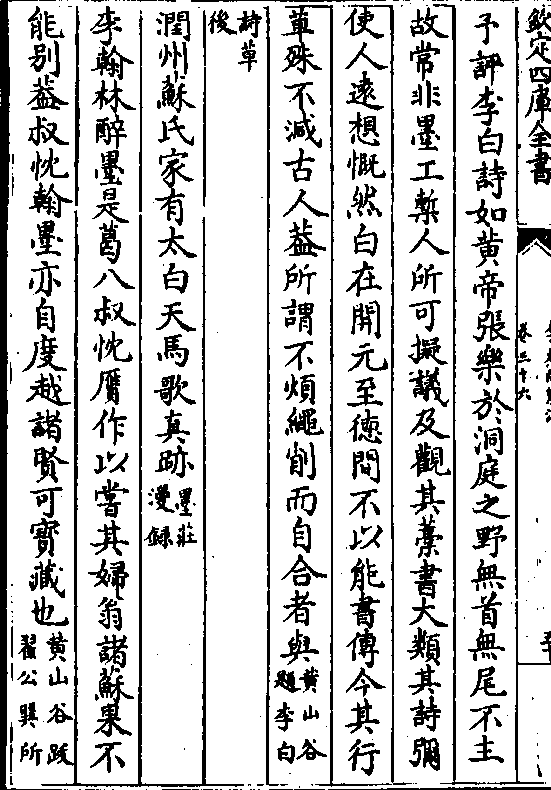 欽定四庫全書
卷三十六
予評李白詩如黄帝張樂於洞庭之野無首無尾不主
故常非墨工槧人所可擬議及觀其藁書大類其詩彌
使人遠想慨然白在開元至徳間不以能書傳今其行
草殊不減古人葢所謂不煩繩削而自合者與黄山谷
題李白
詩草
後
潤州蘇氏家有太白天馬歌真跡墨莊
漫錄
李翰林醉墨是葛八叔忱贗作以嘗其婦翁諸蘇果不
能别葢叔忱翰墨亦自度越諸賢可寳藏也黄山谷跋
翟公巽所